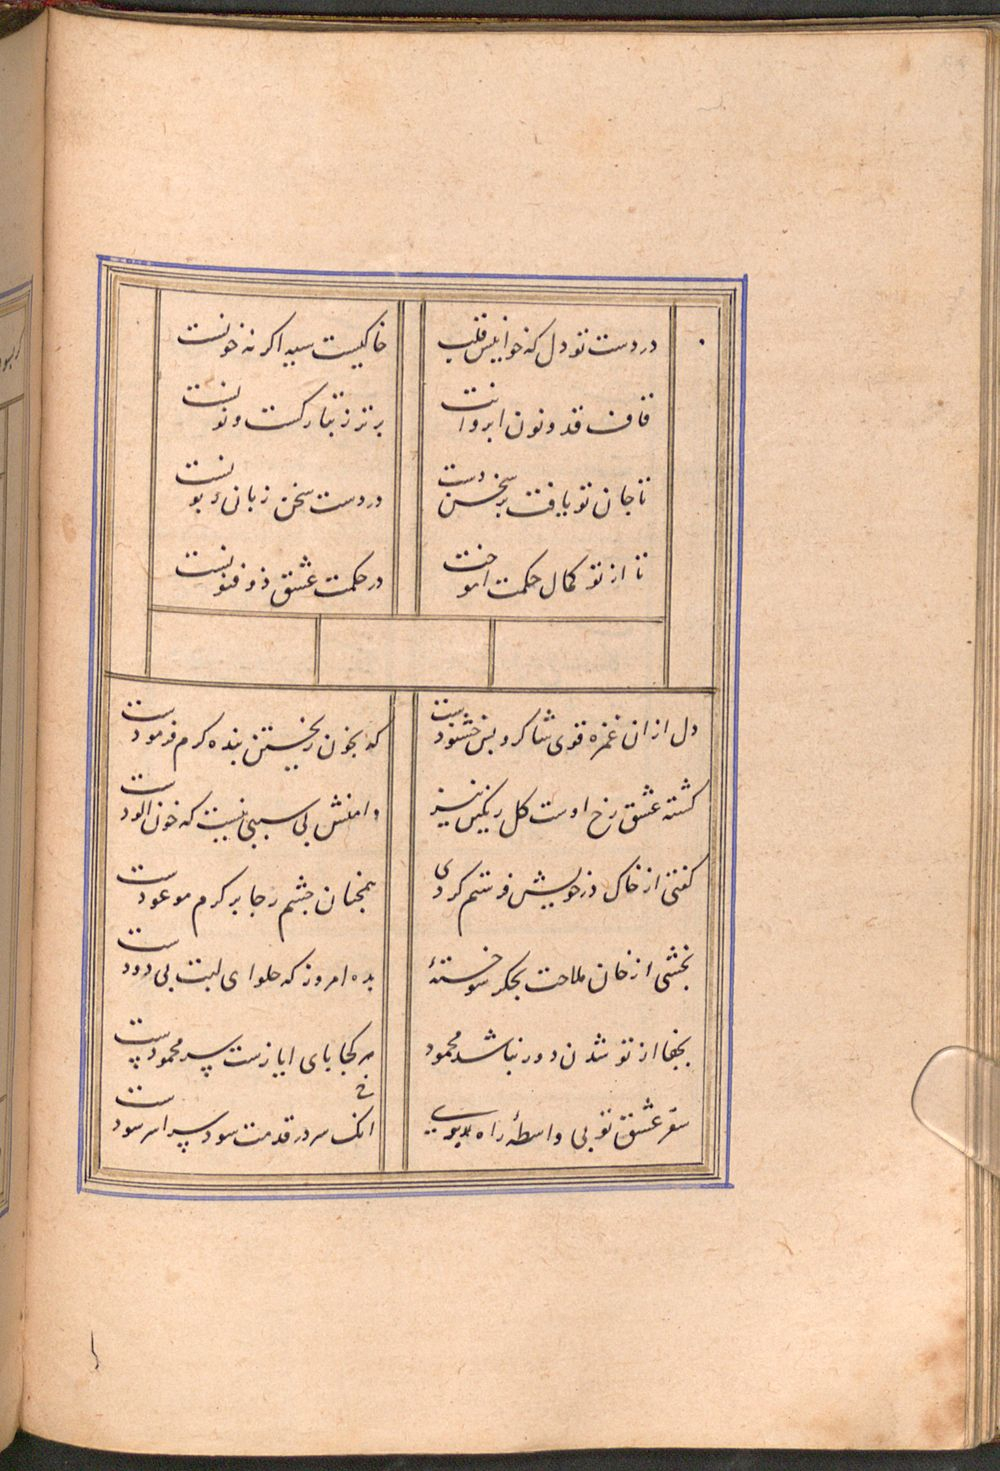 در دست تو دل که خوانیش قلب
خاکیست سیه اکر نه خونست
قاف قد و نون ابروانت
برتر ز تبارکست و نونست
تا جان تو یافت بر سخن دست
در دست سخن زبان زبونست
تا از تو کمال حکمت اموخت
در حکمت عشق ذوفنونست
دل ازان غمزه قوی شاکر و بس خشنودست
که بخون ریختن بنده کرم فرمودست
کشته عشق رخ اوست کل رنکین نیز
دامنش بی سببی نیست که خون الودست
کفتی از خاک در خویش فرستم کردی
همچنان چشم رجا بر کرم موعودست
بخشی از خان ملاحت بجکر سوختهٔ
بده امروز که حلوای لبت بی دودست
بجفا از تو شدن دور نباشد محمود
هر کجا پای ایازست سر محمودست
سفر عشق تو بی واسطهٔ راه بپوی
انک سر در قدمت سود سراسر سودست